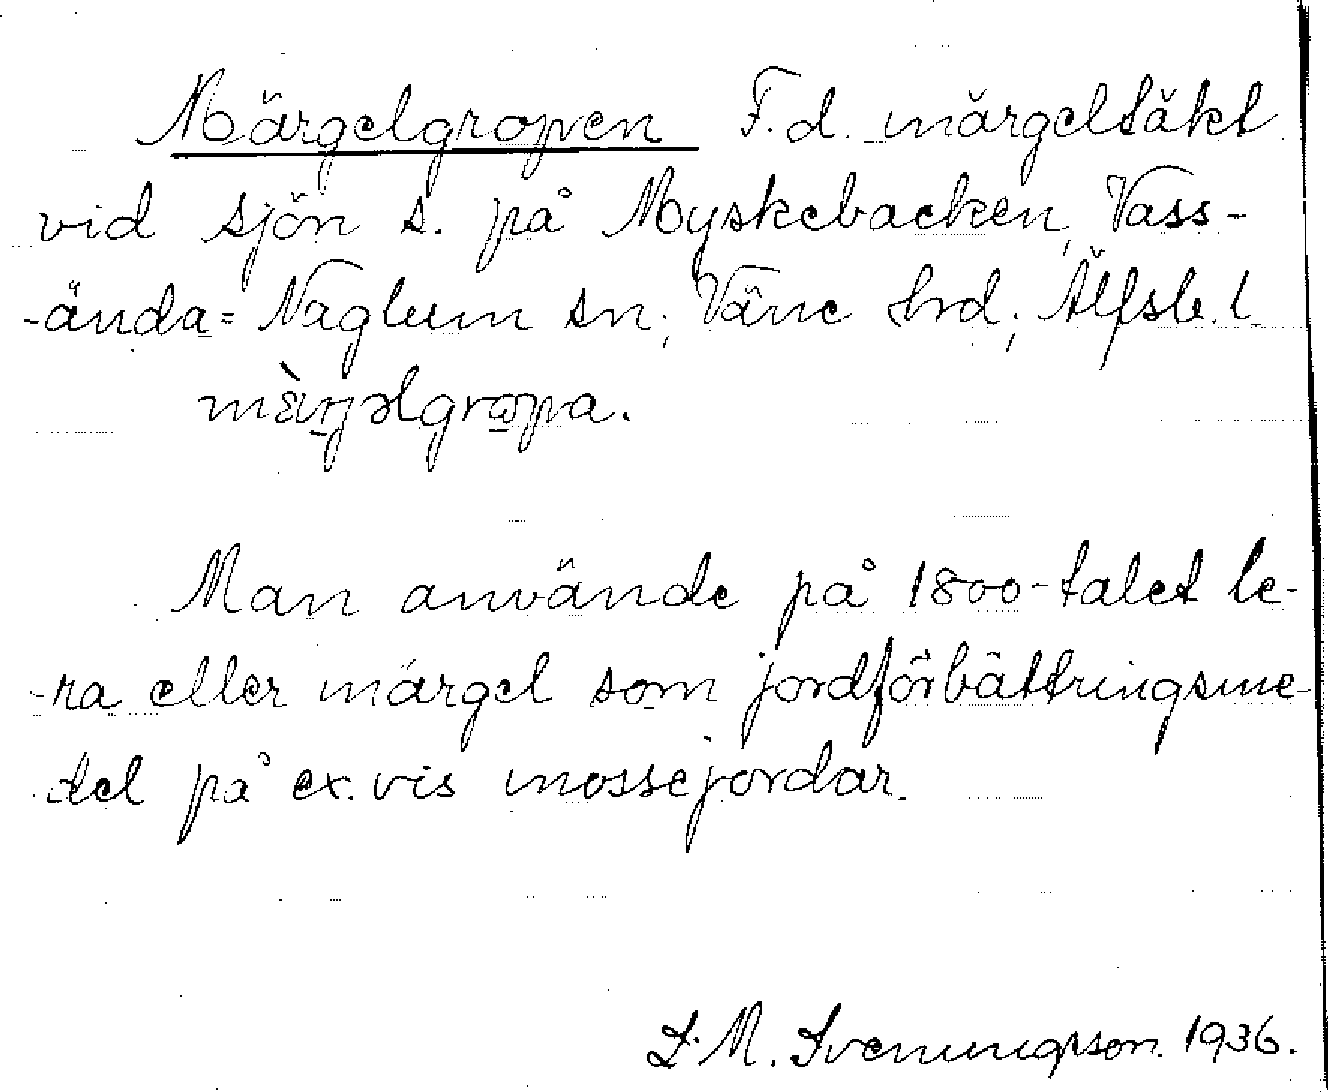 Märgelgropen F.d. märgeltäkt
vid sjön s. på Myskebacken, Vass-
-ända=Naglum sn; Väne hrd; Älfsb. l
Man använde på 1800-talet le-
-ra eller märgel som jordförbättringsme-
del på ex.vis mossejordar.
M. Sveningsson 1936.